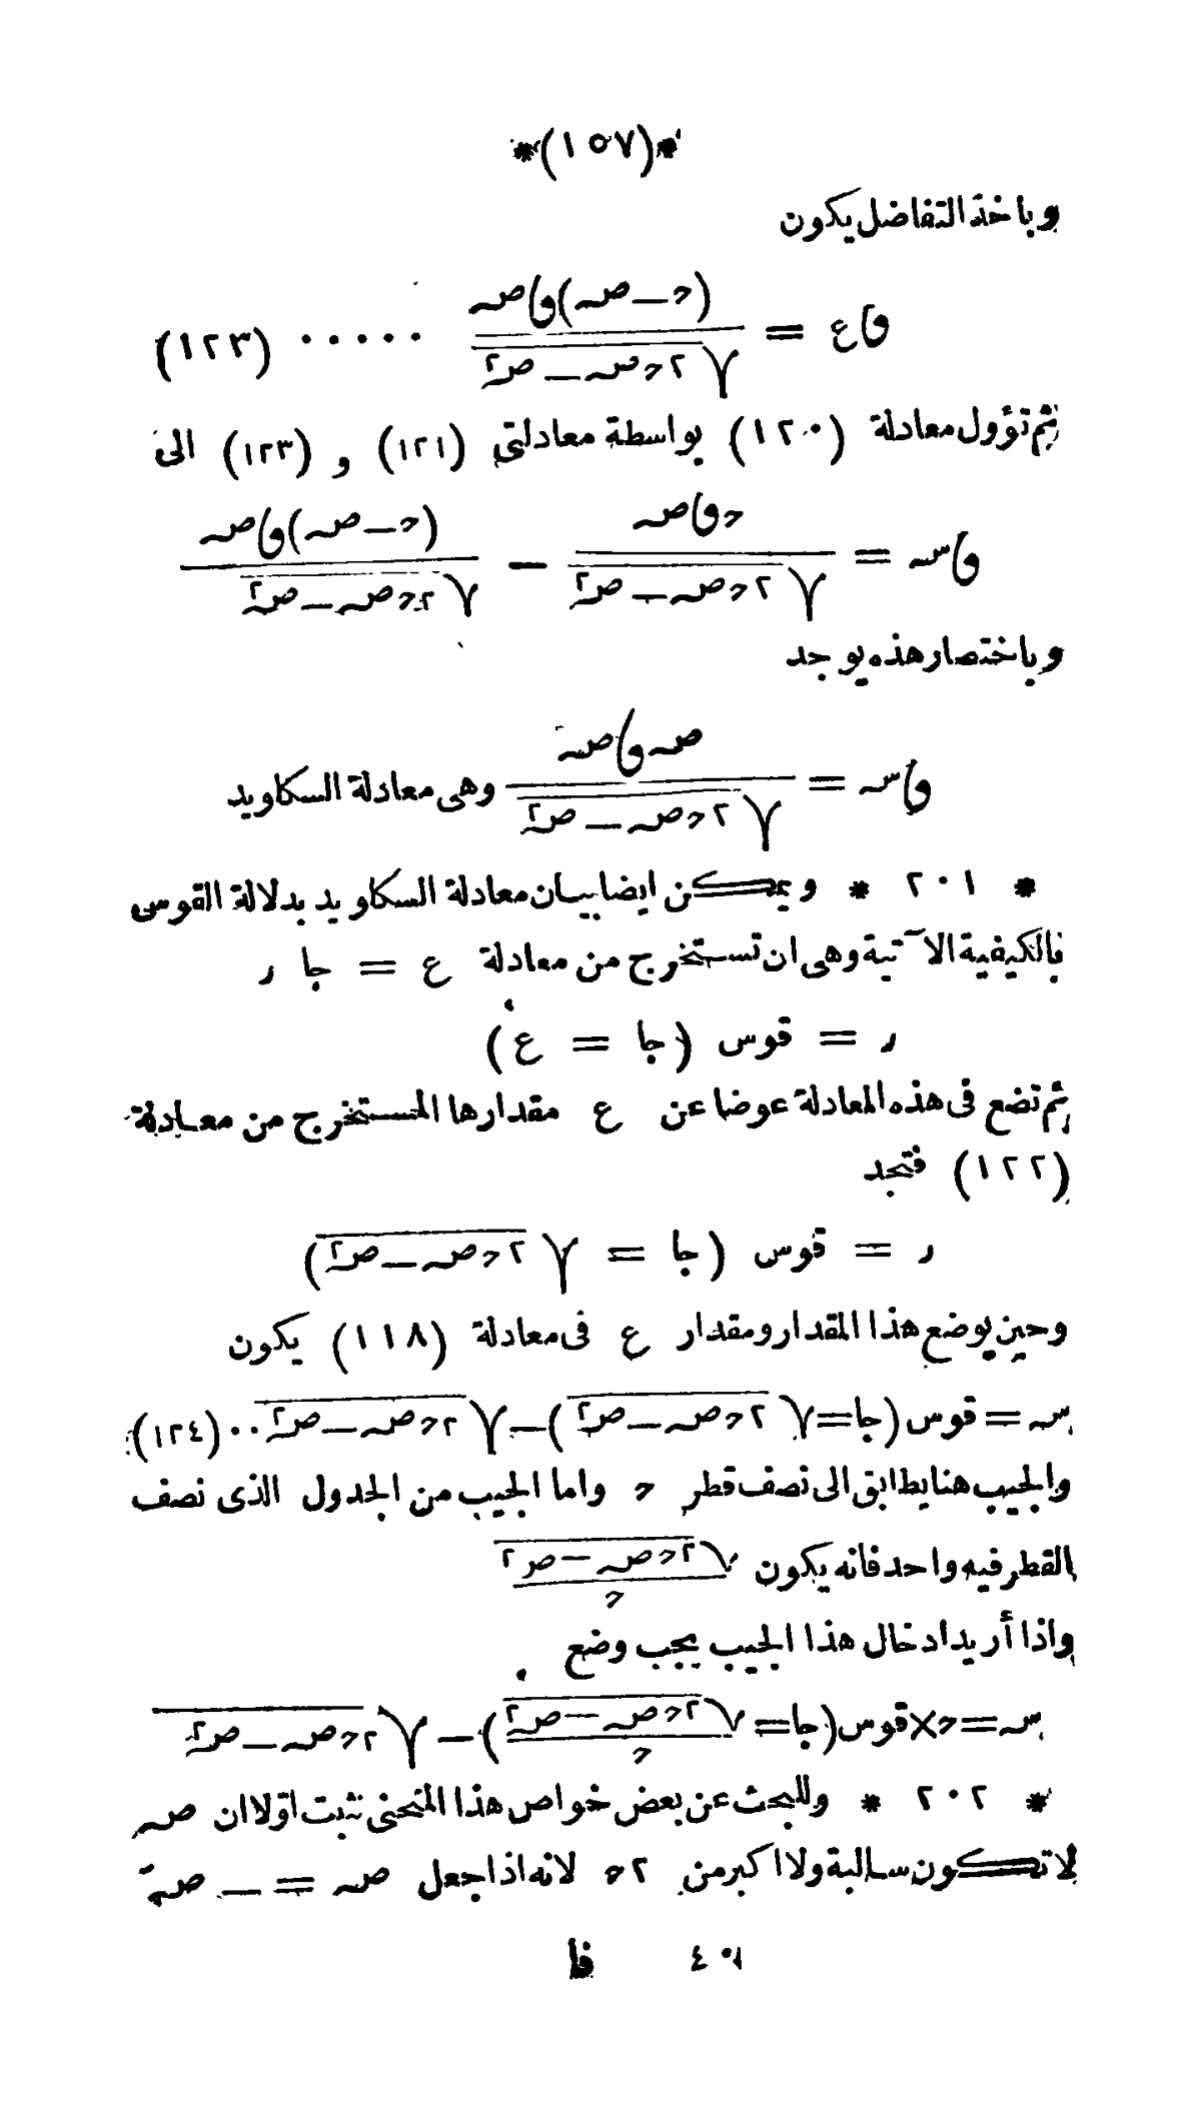 *(١٥٧)*
وباخذ التفاضل يكون
ڡاع = (ح – صہ)ڡاصہ / √(٢حصہ – صہ٢) ..... (١٢٣)
ثم تؤول معادلة (١٢٠) بواسطة معادلتى (١٢١) و (١٢٣) الى
ڡاسہ = حڡاصہ / √(٢حصہ – صہ٢) – (ح – صہ)ڡاصہ / √(٢حصہ – صہ٢)
وباختصار هذه يوجد
ڡاسہ = صہڡاصہ / √(٢حصہ – صہ٢) وهى معادلة السكاويد
* ٢٠١ * ويمكن ايضا بيان معادلة السكاويد بدلالة القوس
بالكيفية الآتية وهى ان تستخرج من معادلة ع = جا ر
ر = قوس (جا = ع)
ثم تضع فى هذه المعادلة عوضا عن ع مقدارها المستخرج من معادلة
(١٢٢) فتجد
ر = قوس (جا = √(٢حصہ – صہ٢))
وحين يوضع هذا المقدار ومقدار ع فى معادلة (١١٨) يكون
سہ = قوس (جا = √(٢حصہ – صہ٢)) – √(٢حصہ – صہ٢) .. (١٢٤)
والجيب هنا يطابق الى نصف قطر ح واما الجيب من الجدول الذى نصف
القطر فيه واحد فانه يكون √(٢حصہ – صہ٢) / ح
واذا أريد ادخال هذا الجيب يجب وضع
سہ = ح× قوس (جا = √(٢حصہ – صہ٢) / ح) – √(٢حصہ – صہ٢)
* ٢٠٢ * وللبحث عن بعض خواص هذا المنحنى نثبت اوّلا ان صہ
لا تكون سالبة ولا اكبر من ٢ح لانه اذا جعل صہ = – صہَ
٤٠ فا